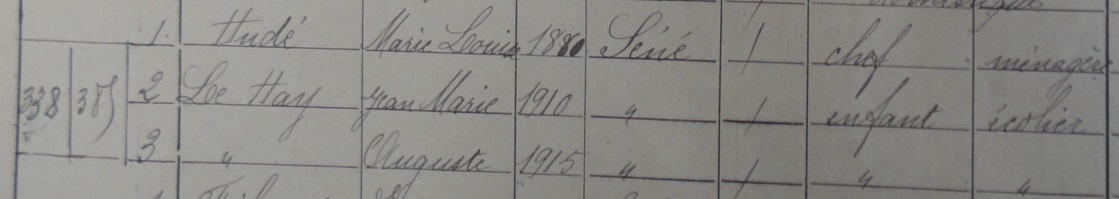 1 Hudé Marie Louise 1880 Séné / chef ménagère
338 385 2 Le Hay Jean Marie 1910 " / enfant écolier
3 " Auguste 1915 " / " "